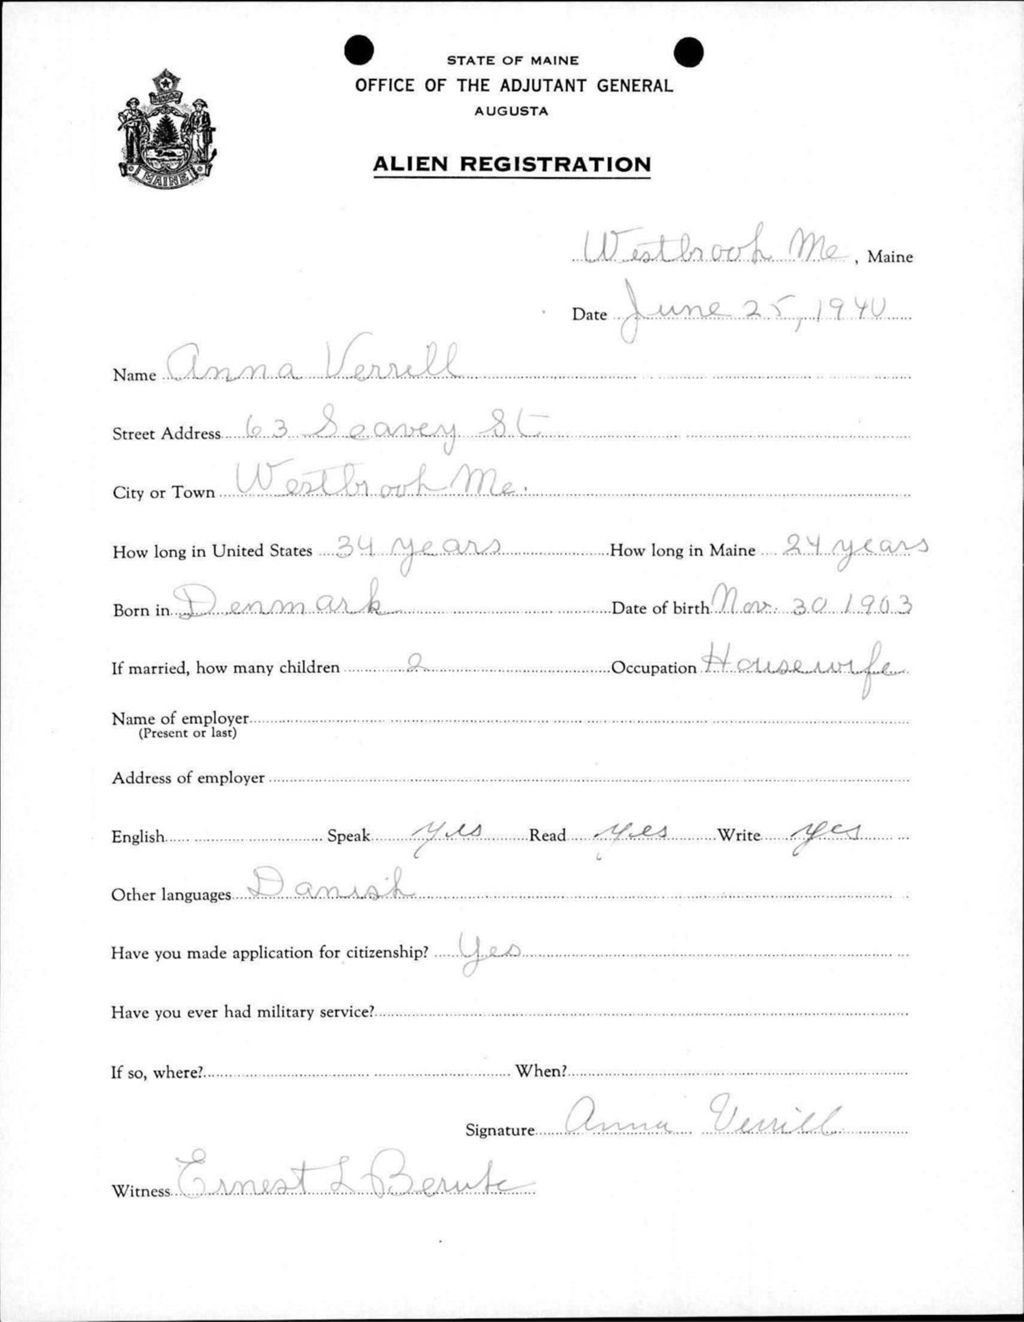 STATE OF MAINE
OFFICE OF THE ADJUTANT GENERAL
AUGUSTA
ALIEN REGISTRATION
MAINE
Westbrook Me, Maine
Date June 25, 1940
Name Anna Verrell
Street Address 63 Seavey St
City or Town Westbrook Me.
How long in United States 34 years How long in Maine 24 years
Born in Denmark Date of birth Nov. 30 1903
If married, how many children 2 Occupation Housewife
Name of employer
(Present or last)
Address of employer
English Speak yes Read yes Write yes
Other languages Danish
Have you made application for citizenship? Yes
Have you ever had military service?
If so, where? When?
Signature Anna Verrill
Witness Ernest L